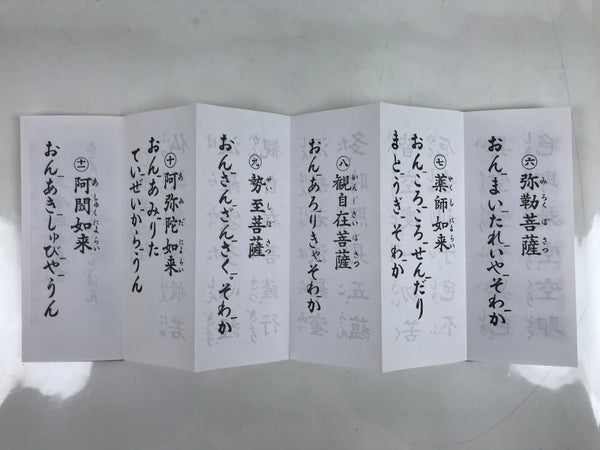 ㊅ 弥勒菩薩
おんまいたれいやそわか
㊆ 薬師如来
おんころころせんだり
まとうぎそわか
㊇ 観自在菩薩
おんあろりきゃそわか
㊈ 勢至菩薩
おんさんざんさくそわか
㊉ 阿弥陀如来
おんあみりた
ていぜいからうん
⑪ 阿閦如来
おんあきしゅびやうん